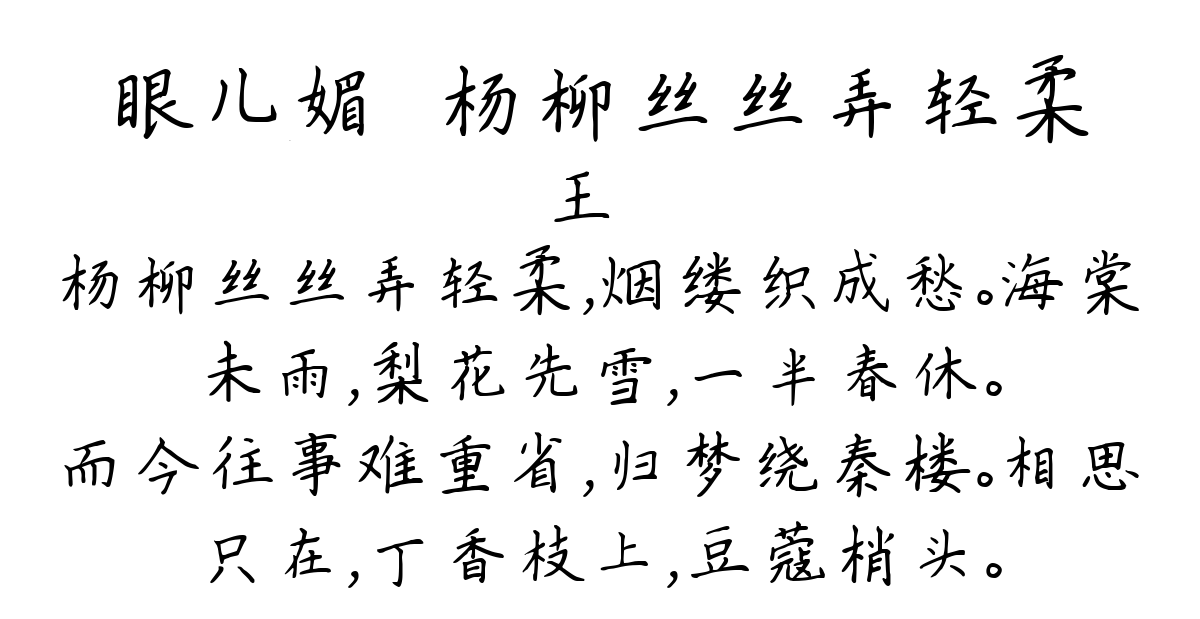 眼儿媚 杨柳丝丝弄轻柔
王
杨柳丝丝弄轻柔,烟缕织成愁。海棠
未雨,梨花先雪,一半春休。
而今往事难重省,归梦绕秦楼。相思
只在,丁香枝上,豆蔻梢头。